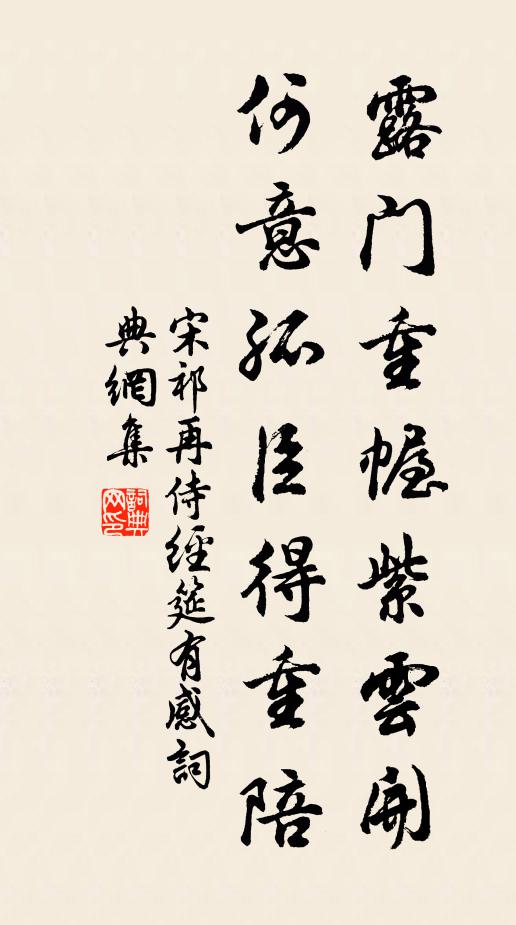 露門重幄紫雲開
何意孤臣得重陪
宋祁再侍經筵有感詞
典網集
詞典网印